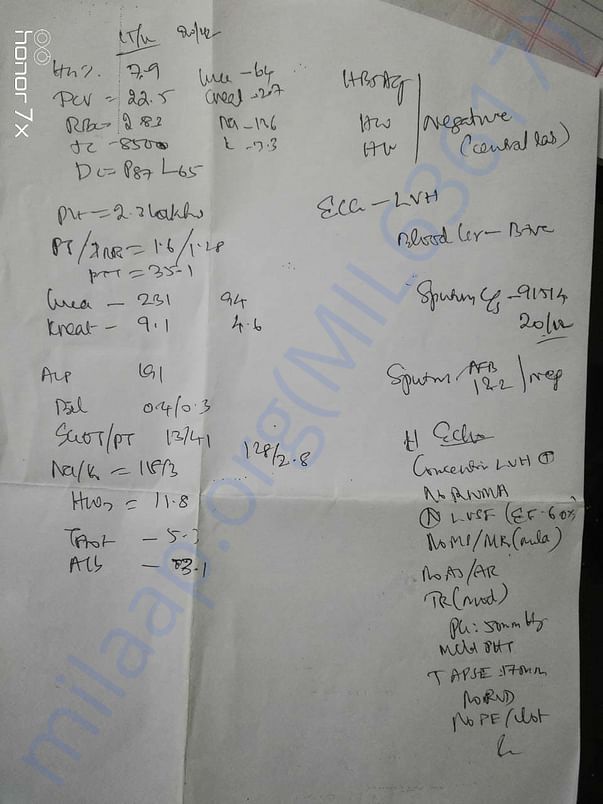 honor 7x
20/12
Hb% 7.9
PCV = 22.5
RBC = 2.83
TC - 8500
DC = P87 L65
Plt = 2.3 lakhs
PT/INR = 1.6/1.28
PTT = 35.1
Urea - 231 94
Kreat - 9.1 4.6
ALP 191
Bil 0.4/0.3
SGOT/PT 13/41
Na/K = 118/3 128/2.8
= 11.8
- 5.3
Alb - 3.1
Urea - 64
Creat
Na - 136
K - 3.3
HBsAg
Negative
(central lab)
ECG - LVH
Blood Gr - B+ve
Sputum C/S - 91514
20/12
Sputum AFB neg
Echo
Concentric LVH +
No RWMA
(N) LVSF (EF-60%)
No MS/MR (mild)
No AS/AR
TR (mod)
PG: 50mm Hg
Mild PHT
TAPSE: 17mm
No RVD
No PE/clot
milaap.org(MIL63617)